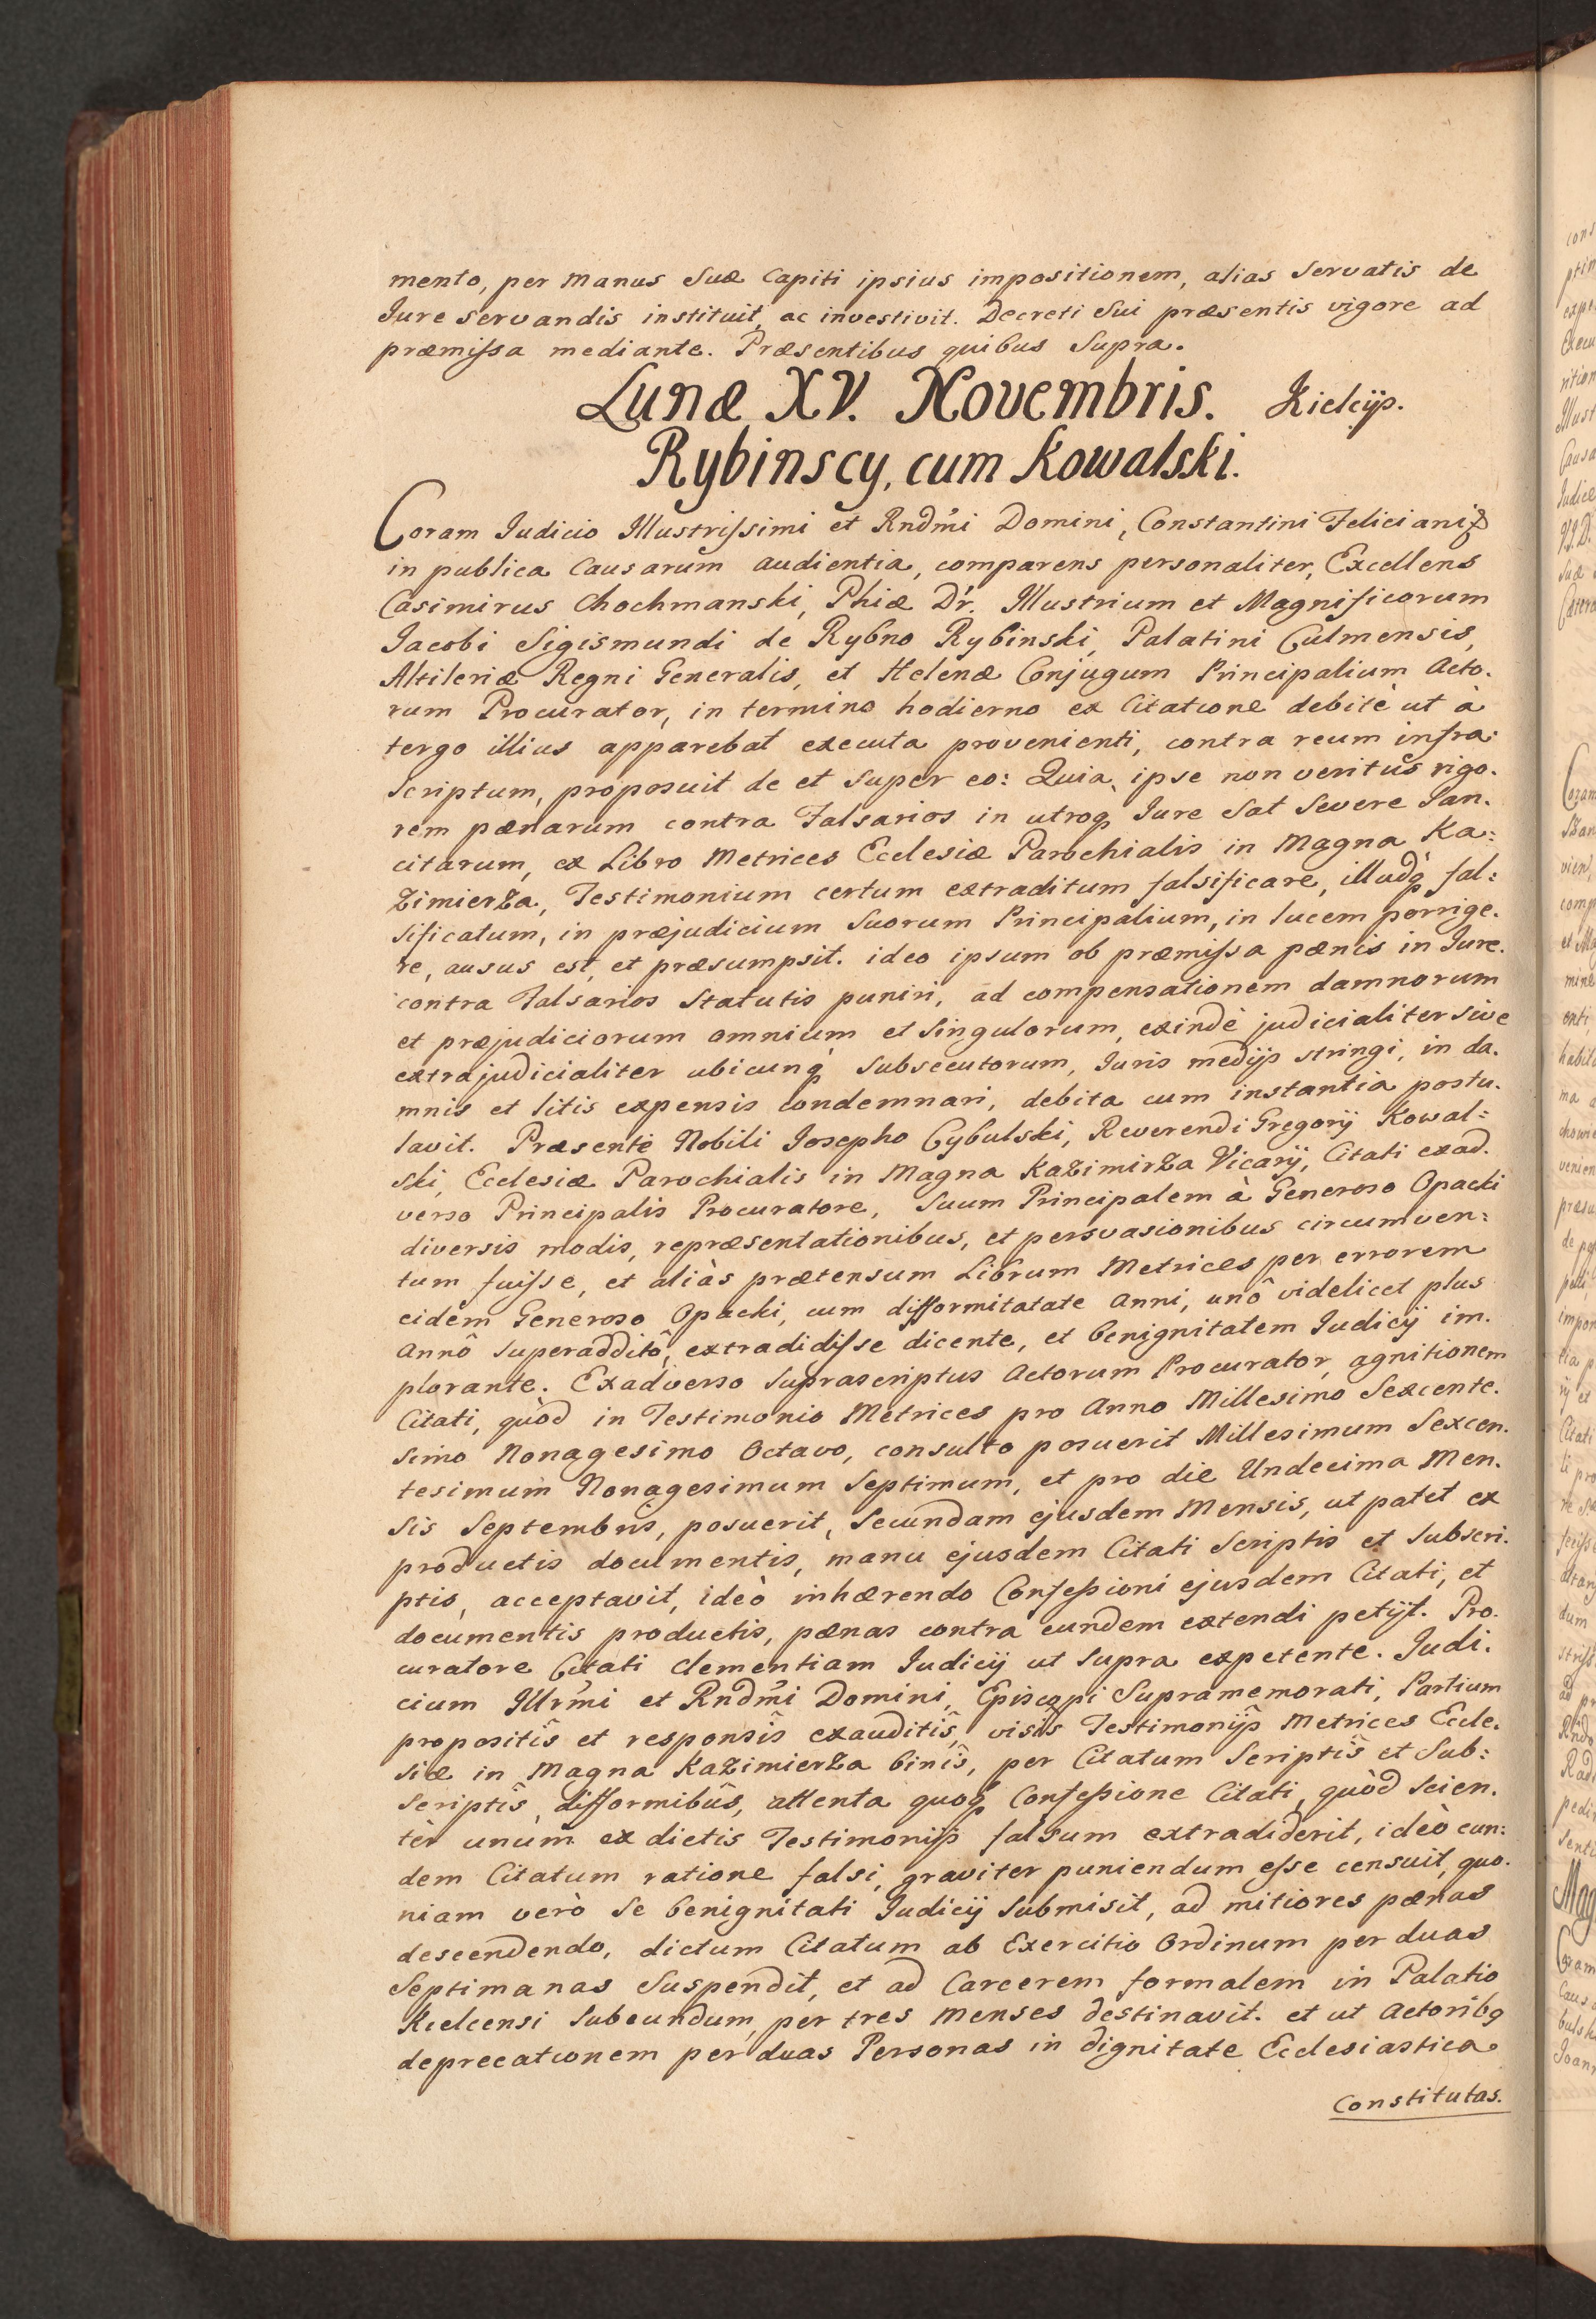 mento, per manus Suæ Capiti ipsius impositionem, alias Servatis de
Jure Servandis instituit, ac investivit. Decreti Sui præsentis vigore ad
præmissa mediante. Præsentibus quibus Supra.
Lunæ XV. Novembris. Kielcijs.
Rybinscy, cum Kowalski.
Coram Judicio Illustrissimi et Rndmi Domini, Constantini Feliciani &
in publica Causarum audientia, comparens personaliter, Excellens
Casimirus Chochmanski, Phiæ Dr. Illustrium et Magnificorum
Jacobi Sigismundi de Rybno Rybinski, Palatini Culmensis,
Altileriæ Regni Generalis, et Helenæ Conjugum Principalium Acto.
rum Procurator, in termino hodierno ex Citatione debitè ut à
tergo illius apparebat executa provenienti, contra reum infra:
scriptum, proposuit de et super eo: Quia, ipse non veritus rigo.
rem pænarum contra Falsarios in utroq Jure Sat Severe San.
citarum, ex Libro Metrices Ecclesiæ Parochialis in Magna Ka:
zimierza, Testimonium certum extraditum falsificare, illudq fal:
sificatum, in præjudicium Suorum Principalium, in lucem porrige.
re, ausus est, et præsumpsit. ideo ipsum ob præmissa pænis in Jure.
contra Falsarios Statutis puniri, ad compensationem damnorum
et præjudiciorum omnium et Singulorum, exindè judicialiter sive
extrajudicialiter ubicunq Subsecutorum, Juris medijs stringi, in da.
mnis et litis expensis condemnari, debita cum instantia postu.
lavit. Præsente Nobili Josepho Cybulski, Reverendi Gregorij Kowal:
ski, Ecclesiæ Parochialis in Magna Kazimirza Vicarij, Citati exad.
verso Principalis Procuratore, Suum Principalem à Generoso Opacki
diversis modis, repræsentationibus, et persvasionibus circumven:
tum fuisse, et aliàs prætensum Librum Metrices per errorem
eidem Generoso Opacki, cum difformitatate Anni, unô videlicet plus
Annô Superadditô, extradidisse dicente, et benignitatem Judicij im.
plorante. Exadverso Suprascriptus Actorum Procurator, agnitionem
Citati, quòd in Testimonio Metrices pro Anno Millesimo Sexcente.
simo Nonagesimo Octavo, consulto posuerit Millesimum Sexcen.
tesimum Nonagesimum Septimum, et pro die Undecima Men.
sis Septembris, posuerit, Secundam ejusdem Mensis, ut patet ex
productis documentis, manu ejusdem Citati Scriptis et Subscri.
ptis, acceptavit, ideò inhærendo Confessioni ejusdem Citati, et
documentis productis, pænas contra eundem extendi petijt. Pro.
curatore Citati Clementiam Judicij ut Supra expetente. Judi.
cium Illrmi et Rndmi Domini, Episcopi Supramemorati, Partium
propositis et responsis exauditis, visis Testimonijs Metrices Eccle.
siæ in Magna Kazimierza binis, per Citatum Scriptis et Sub:
scriptis, difformibus, attenta quoq Confessione Citati, quòd Scien.
tèr unum ex dictis Testimonijs falsum extradiderit, ideò eun:
dem Citatum ratione falsi, graviter puniendum esse censuit, quo.
niam verò Se benignitati Judicij Submisit, ad mitiores pænas
descendendo, dictum Citatum ab Exercitio Ordinum per duas
Septimanas Suspendit, et ad Carcerem formalem in Palatio
Kielcensi Subeundum, per tres menses destinavit. et ut Actoribq
deprecationem per duas Personas in dignitate Ecclesiastica
Constitutas.